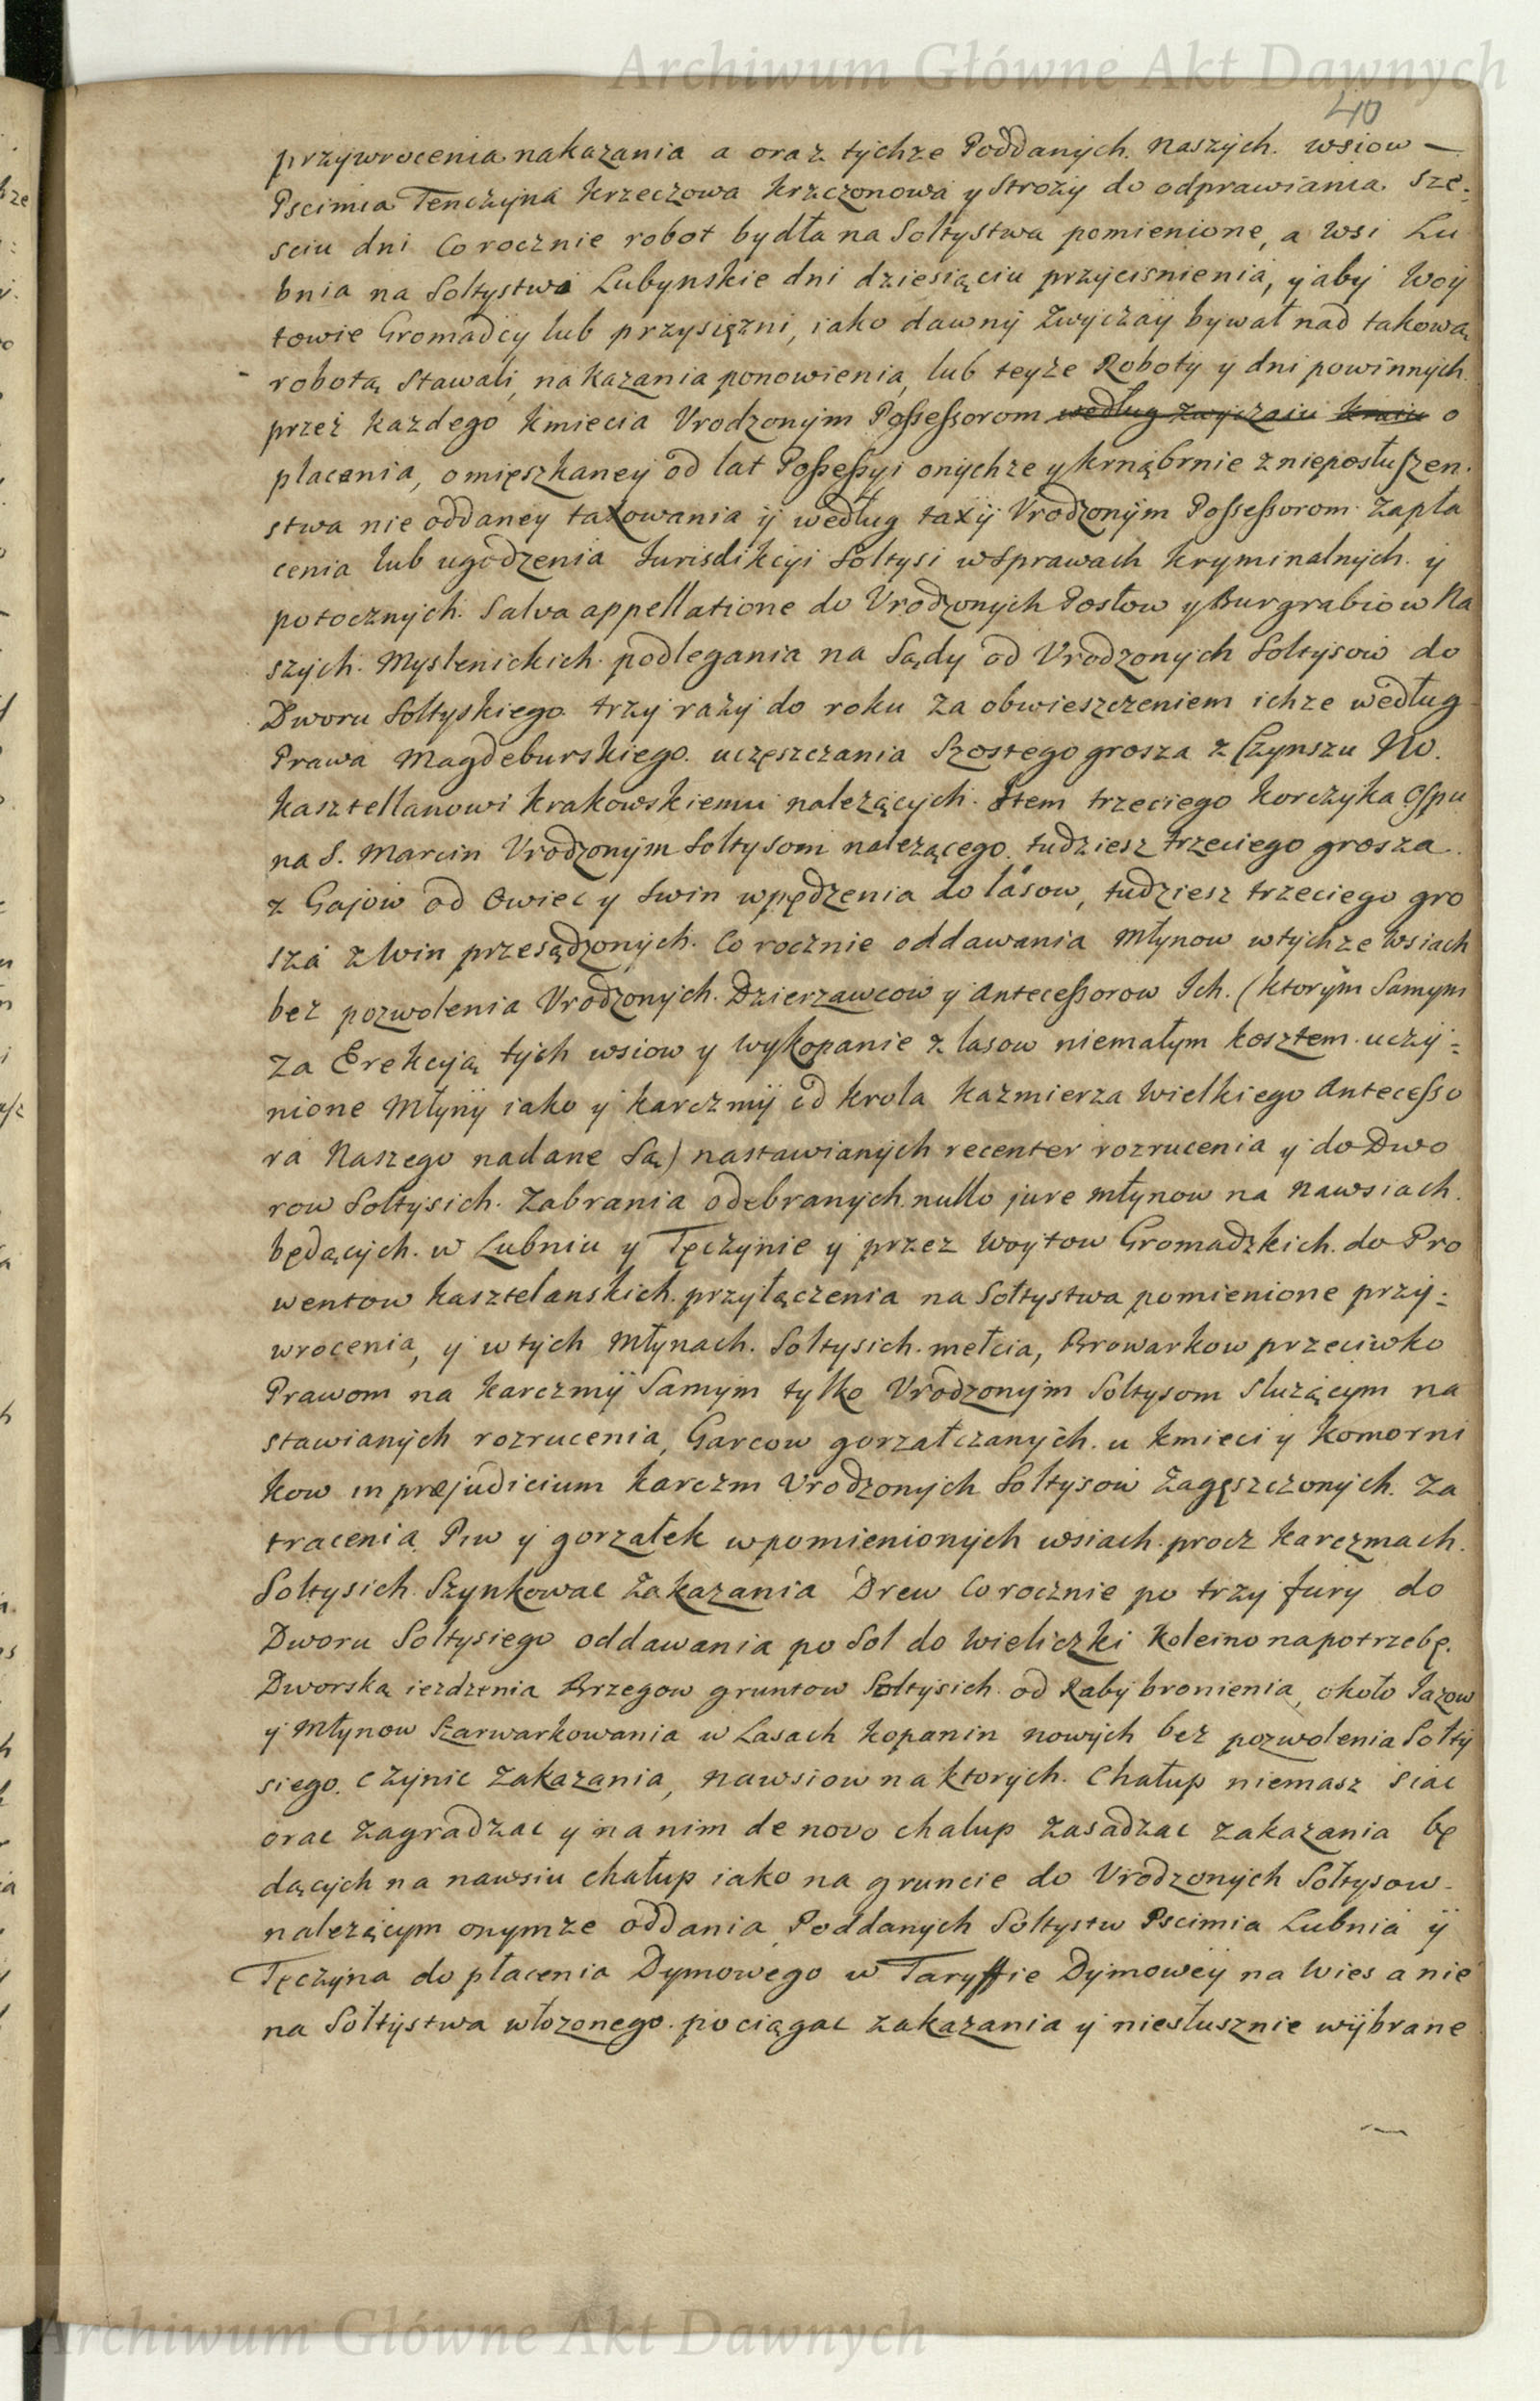 Archiwum Główne Akt Dawnych
40
przywrocenia nakazania a oraz tychze Poddanych. Naszych. wsiow —
Pscimia Tenczyna Krzeczowa Krzczonowa y Strozy do odprawiania sze=
sciu dni Co rocznie robot bydła na Sołtystwa pomienione, a wsi Lu
bnia na Sołtystwa Lubynskie dni dziesiąciu przycisnienia, y aby Woy
towie Gromadcy lub przysięzni, iako dawny zwyczay bywał nad takową
robotą stawali, nakazania ponowienia, lub teyze Roboty y dni powinnych
przez kazdego kmiecia Vrodzonym Possessorom według zwyczaiu kmiu o
placenia, omięszkaney od lat Possessyi onychze y krnąbrnie z nieposłuszen.
stwa nie oddaney taxowania y według taxy Vrodzonym Possessorom zapła
cenia lub ugodzenia Jurisdikcyi Sołtysi w sprawach kryminalnych. y
potocznych. Salva appellatione do Vrodzonych Posłow y Burgrabiow Na
szych. Myslenickich. podlegania na Sądy od Vrodzonych Sołtysow do
Dworu Sołtyskiego. trzy razy do roku za obwieszczeniem ichze według
Prawa Magdeburskiego. uczęszczania Szostego grosza z Czynszu No.
Kasztellanowi Krakowskiemu nalezących. Item trzeciego Korczyka Ospu
na S. Marcin Vrodzonym Sołtysom nalezącego. tudziesz trzeciego grosza.
z Gajow od Owiec y Swin wpędzenia do lasow, tudziesz trzeciego gro
sza z win przesądzonych. Co rocznie oddawania Młynow w tychze wsiach
bez pozwolenia Vrodzonych. Dzierzawcow y Antecessorow Ich. (ktorym Samym
za Erekcyą tych wsiow y wykopanie z lasow niemałym kosztem. uczy=
nione Młyny iako y karczmy od krola Kazmierza Wielkiego Antecesso
ra Naszego nadane są) nastawianych recenter rozrucenia y do Dwo
row Sołtysich. zabrania odebranych. nullo jure młynow na nawsiach.
będących. w Lubniu y Tęczynie y przez Woytow Gromadzkich. do Pro
wentow kasztelanskich. przyłączenia na Sołtystwa pomienione przy=
wrocenia, y w tych Młynach. Sołtysich. mełcia, Browarkow przeciwko
Prawom na karczmy Samym tylko Vrodzonym Sołtysom służącym na
stawianych rozrucenia, Garcow gorzałczanych. u kmieci y Komorni
kow in præjudicium karczm Vrodzonych Sołtysow zagęszczonych. za
tracenia Piw y gorzałek w pomienionych wsiach. procz karczmach.
Sołtysich. Szynkowac zakazania Drew Co rocznie po trzy fury do
Dworu Sołtysiego oddawania po Sol do Wieliczki koleino na potrzebę.
Dworską iezdzenia Brzegow gruntow Sołtysich. od Raby bronienia, około Jazow
y Młynow Szarwarkowania w Lasach kopanin nowych bez pozwolenia Sołty
siego. czynic zakazania, nawsiow na ktorych. Chałup niemasz siac
orac zagradzac y na nim de novo chalup zasadzac zakazania bę
dących na nawsiu chałup iako na gruncie do Vrodzonych Sołtysow.
nalezącym onymze oddania, Poddanych Sołtystw Pscimia Lubnia y
Tęczyna do płacenia Dymowego w Taryffie Dymowey na Wies a nie
na Sołtystwa włozonego. pociągac zakazania y niesłusznie wybrane
Archiwum Główne Akt Dawnych